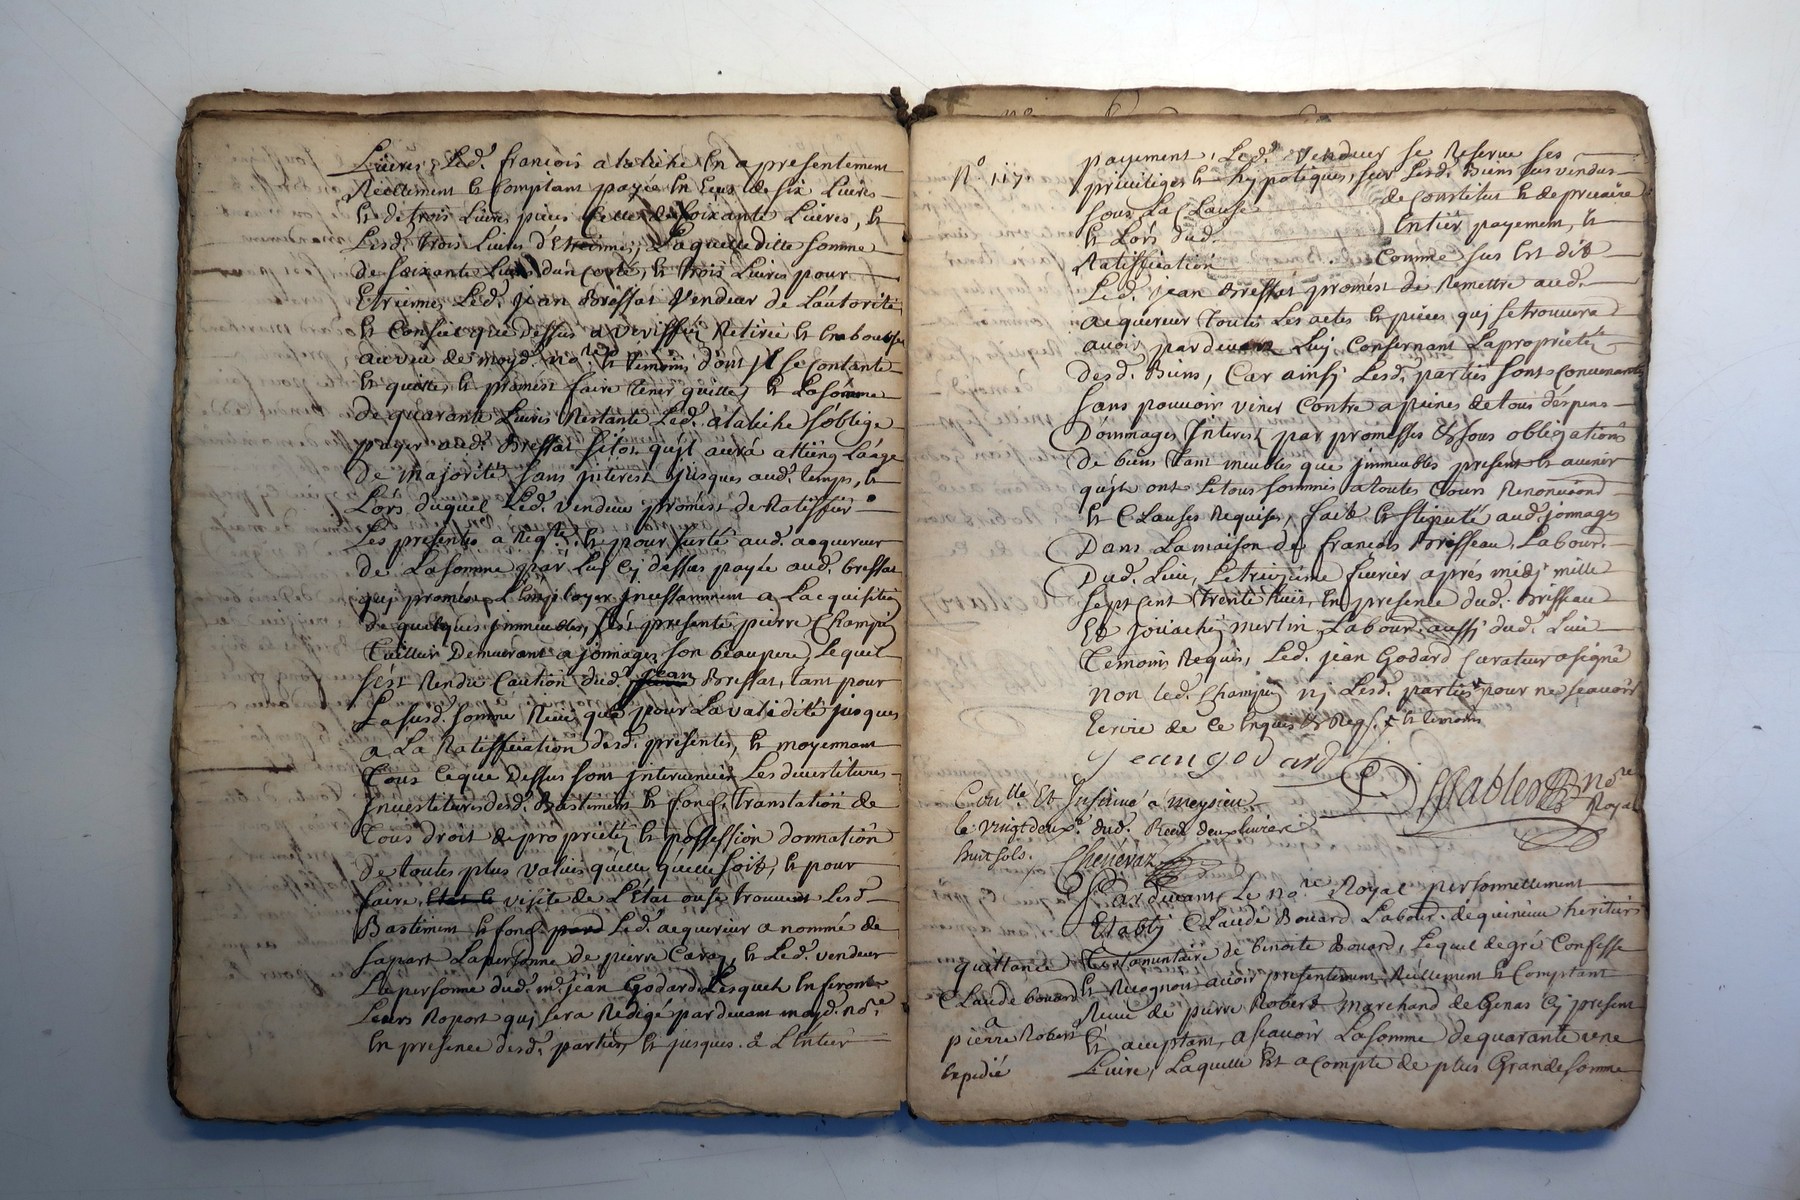 Livres, Led. françois alatiche En a presentement
Reellement et Comptant payée En Ecus de six Livres
et de trois Livres pieces Celle de soixante Livres, et
Lesd. trois Livres d'Etreinne, Laquelle ditte somme
de soixante Livres d'un Costé, et trois Livres pour
Etriennes Led. jean Bressat Vendeur de L'autorité
et Conseil que dessus a veriffié Retirée et Emboursée
au veu de moyd. no.re et temoins dont jl se Contante
et quitte, et promest faire tenir quitte, et La somme
de quarante Livres Restante Led. alatiche s'oblige
payer aud. Bressat sitot qu'jl aura atteing L'aage
de majorité sans jnterest jusques aud. temps, et
Lors duquel Led. vendeur promest de Ratiffier
Les presentes a Reqte. et pour surté aud. acquereur
de La somme par Luy Cy dessus payée aud. bressat
quj promest L'employer jncessamment a L'acquisition
de quelques jmmeubles, s'est presenté pierre Champin
Tailleur Demeurant a jonnages son beaupere, Lequel
s'est Rendu Caution dud. jean Bressat, tant pour
La susd. somme Reçue que pour La validité jusques
a La Ratiffication desd. presentes, et moyennant
Tous Ce que Dessus sont jntervenues Les devestitures
jnvestitures desd. Bastiment et fong. translation de
Tous droit de proprieté, et possession donnation
de toutes plus values quelle qu'elle soit, et pour
faire visite de L'Etat ou se trouvent Lesd.
Bastiment et fong. Led. acquereur a nommé de
sa part La personne de pierre Caray, et Led. vendeur
La personne dud. md. jean Godard Lesquels En feront
Leurs Raport quj sera Redigé par devant moyd. no.re
En presence desd. parties, et jusques a L'Entier
N.o 117.
payement, Led. Vendeur se Reserve ses
privileges et hypoteques, sur Lesd. Biens sus vendus
sous La Clause de Constitut et de precaire
et Lors dud. Entier payement, et
Ratiffication Comme sus est dit
Led. jean Bressat promest de Remettre aud.
acquereur toutes Les actes et pieces quj se trouvera
avoir par devers Luy Consernant La proprieté
desd. Biens, Car ainsj Lesd. parties sont Convenantes
sans pouvoir venir Contre a peines de tous despens
Dommages Interest, par promesses et sous obligations
de biens tant meubles que jmmeubles present et avenir
qu'jls ont Le tous soummis a toutes Cours Renonciaond
et Clauses Requises, fait et stipulé aud. jonnages
Dans La maison de françois Brisseau, Labour.
Dud. Lieu, Le treizieme fevrier aprés midj mille
sept Cent trente huit, En presence dud. Brisseau
et joüachin merlin, Labour. aussj dud. Lieu
Temoins Requis, Led. jean Godard Curateur a signé
non Led. Champin nj Lesd. parties pour ne sçavoir
Ecrire de Ce Enquis et Reqs. et temoins
jean godard
Dessables no.re Royal
Con.llé Et Insinué a meyzieu
le vingt deux.e dud. Reçu deux livres
huit sols. Chenevaz
Par devant Le no.re Royal personnellement
Etably Claude Bouard Labour. de quinieu heritier
Testamentaire de benoite Bouard, Lequel de gré Confesse
et Recognoit avoir presentement Reellement et Comptant
Receu de pierre Robert Marchand de Genas Cy present
et acceptant, ascavoir La somme de quarante une
Livre, Laquelle Est a Compte de plus Grande somme
quittance
Claude bouard
a
pierre Robert
Expedié